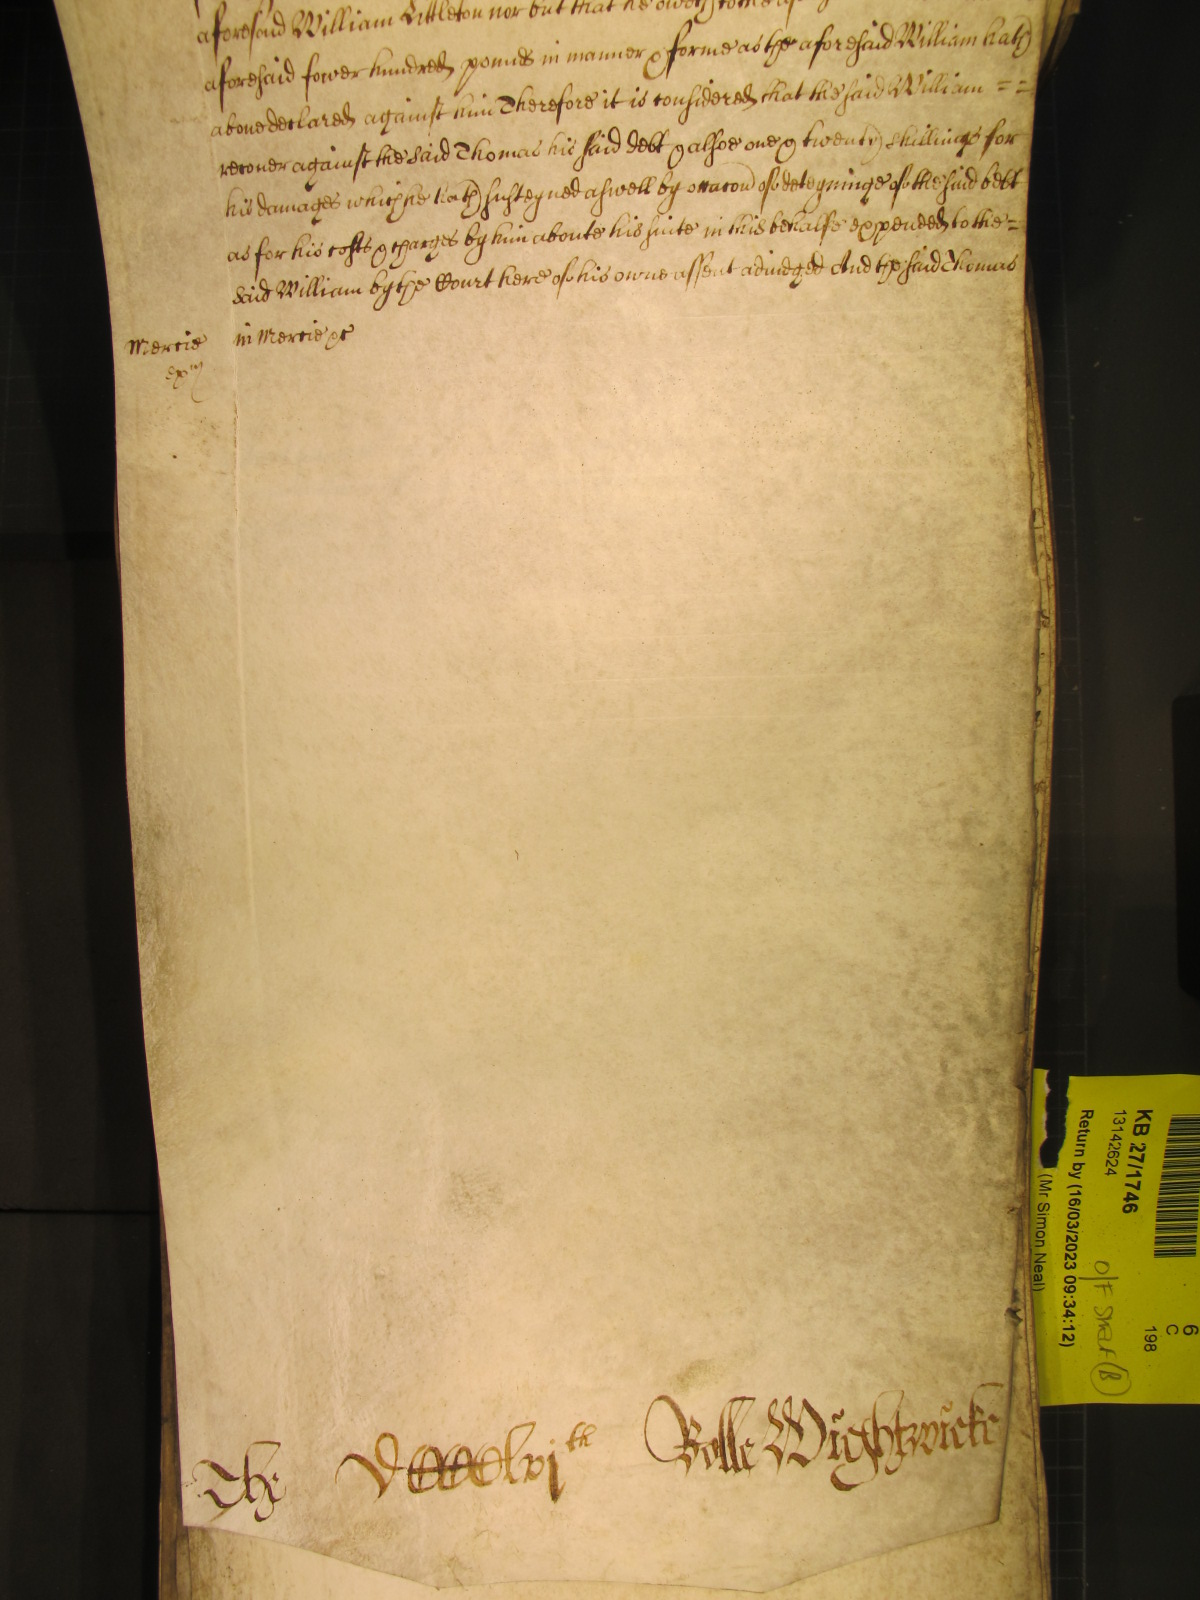 aforesaid William Littleton nor but that he oweth to the
aforesaid fower hundred pounds in manner & forme as the aforesaid William hath
above declared against him Therefore it is considered that the said William = =
recover against the said Thomas his said debt & alsoe one & twenty shillings for
his damages which he hath susteyned aswell by occacon of deteyninge of the said debt
as for his costs & charges by him aboute his suite in this behalfe expended to the =
said William by the Court here of his owne assent adiudged And the said Thomas
Mercie in Mercie &c
The DCCCClvjth Rolle Wightwicke
KB 27/1746
13142624
Return by (16/03/2023 09:34:12)
(Mr Simon Neal)
6
C
198
O/F Shelf (B)